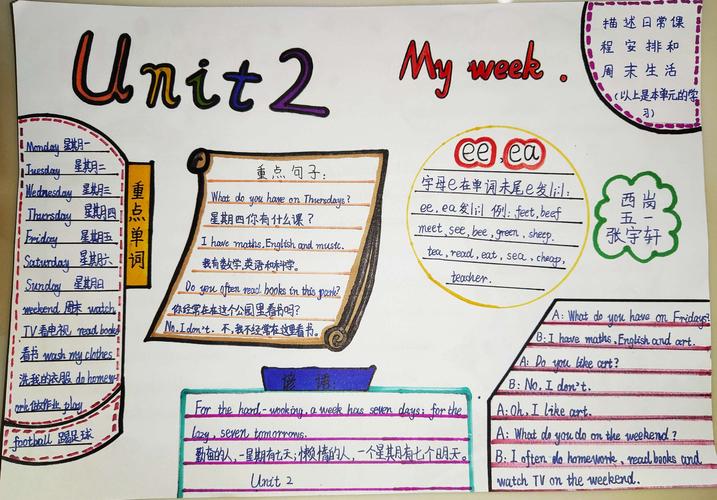 Unit 2
My week.
描述日常课
程安排和
周末生活
(以上是本单元的学
习)
Monday 星期一
Tuesday 星期二
Wednesday 星期三
Thursday 星期四
Friday 星期五
Saturday 星期六
Sunday 星期日
weekend 周末 watch
TV 看电视 read books
看书 wash my clothes
洗我的衣服 do homew
ork 做作业 play
football 踢足球
重点单词
重点句子:
What do you have on Thursdays?
星期四你有什么课?
I have maths, English and music.
我有数学,英语和科学。
Do you often read books in this park?
你经常在这个公园里看书吗?
No, I don't. 不,我不经常在这里看书。
ee, ea
字母e在单词末尾e发/i:/:
ee, ea发/i:/ 例: feet, beef
meet, see, bee, green, sheep.
tea, read, eat, sea, cheap,
teacher.
西岗
五一
张宇轩
谚语
For the hard-wooking, a week has seven days; for the
lazy, seven tomorrows.
勤劳的人,一星期有七天;懒惰的人,一个星期有七个明天。
Unit 2
A: What do you have on Fridays?
B: I have maths, English and art.
A: Do you like art?
B: No, I don't.
A: Oh, I like art.
A: What do you do on the weekend?
B: I often do homework, read books and
watch TV on the weekend.